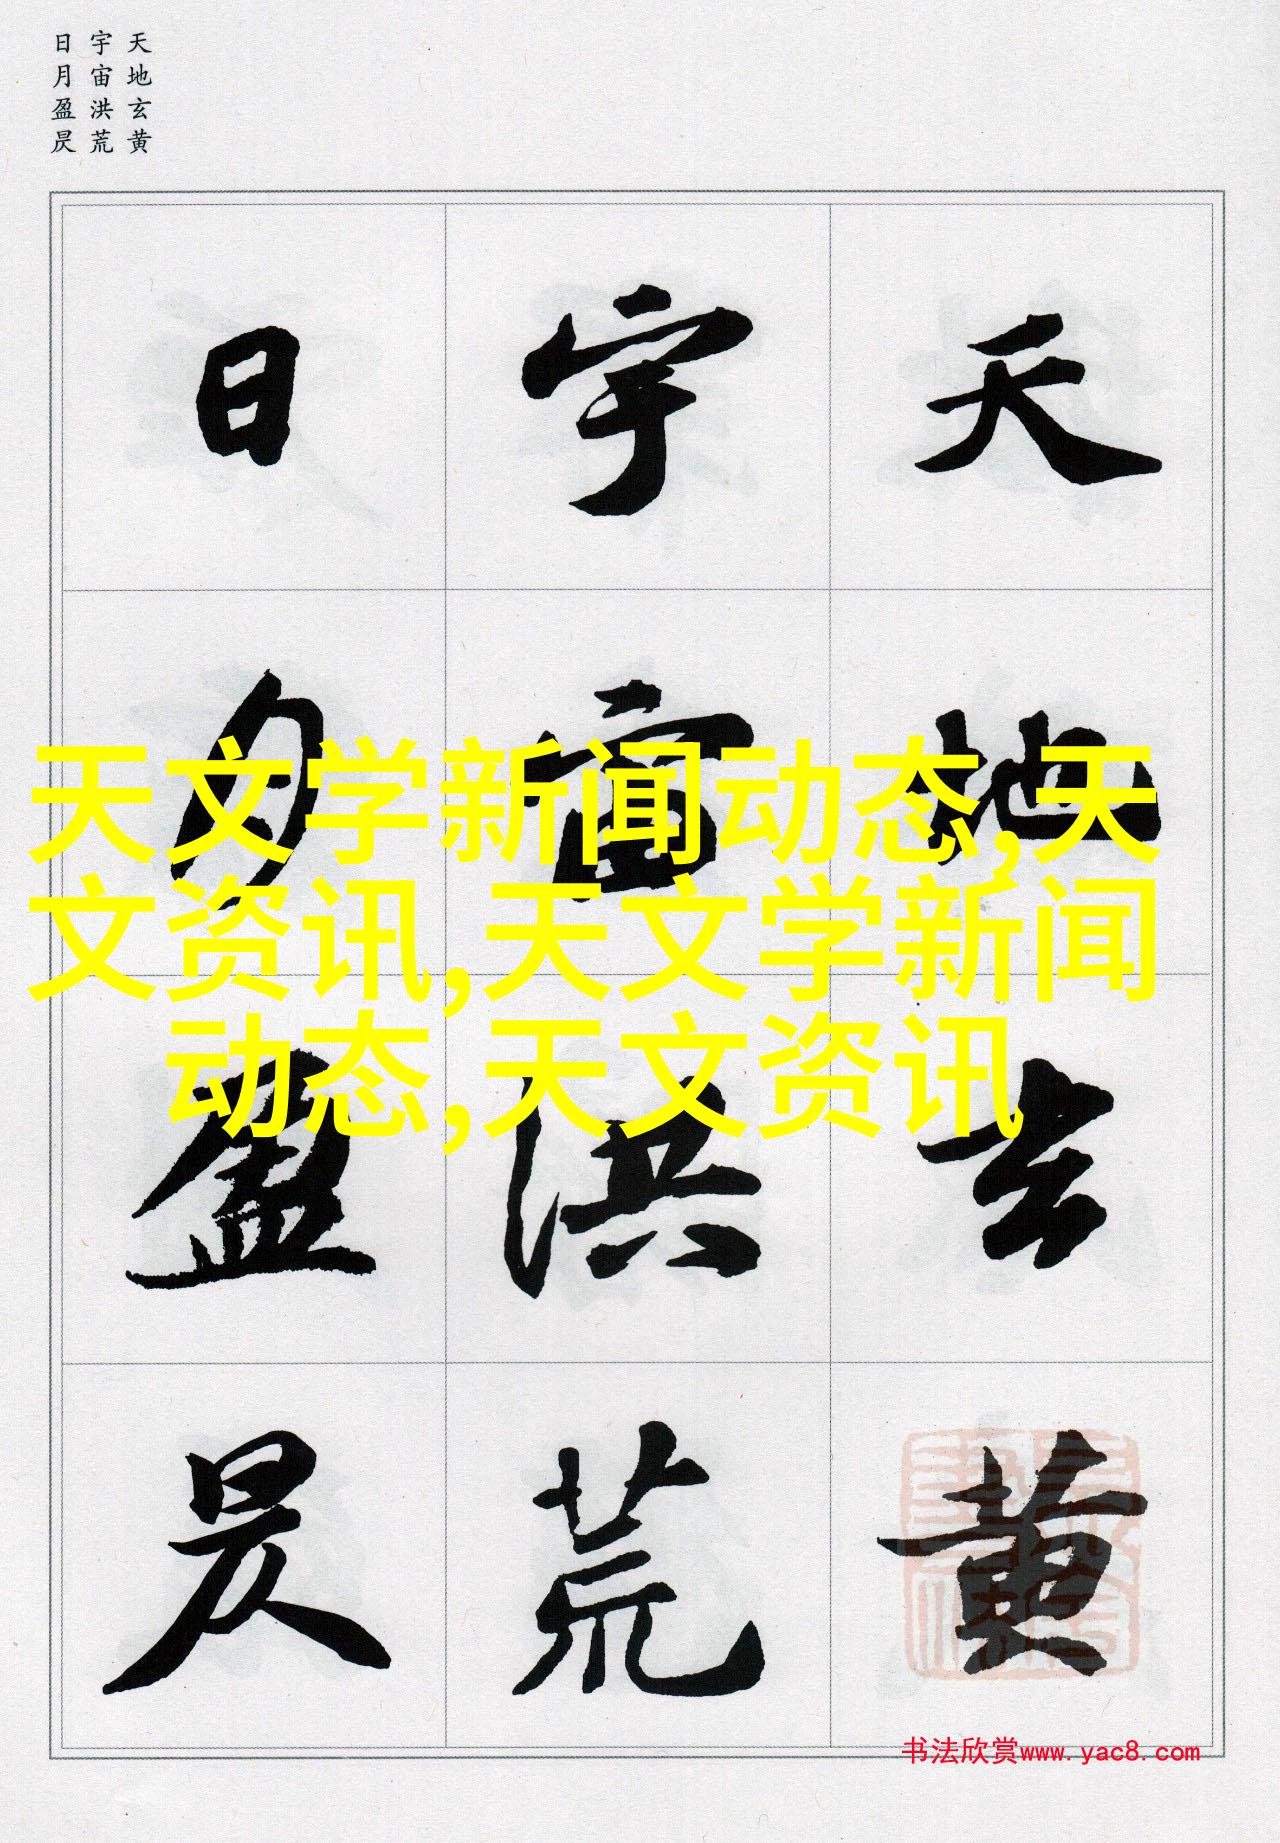 天地玄黄
宇宙洪荒
日月盈昃
天地玄黄
宇宙洪荒
日月盈昃
天文学新闻动态,天
文资讯,天文学新闻
动态,天文资讯
书法欣赏www.yac8.com